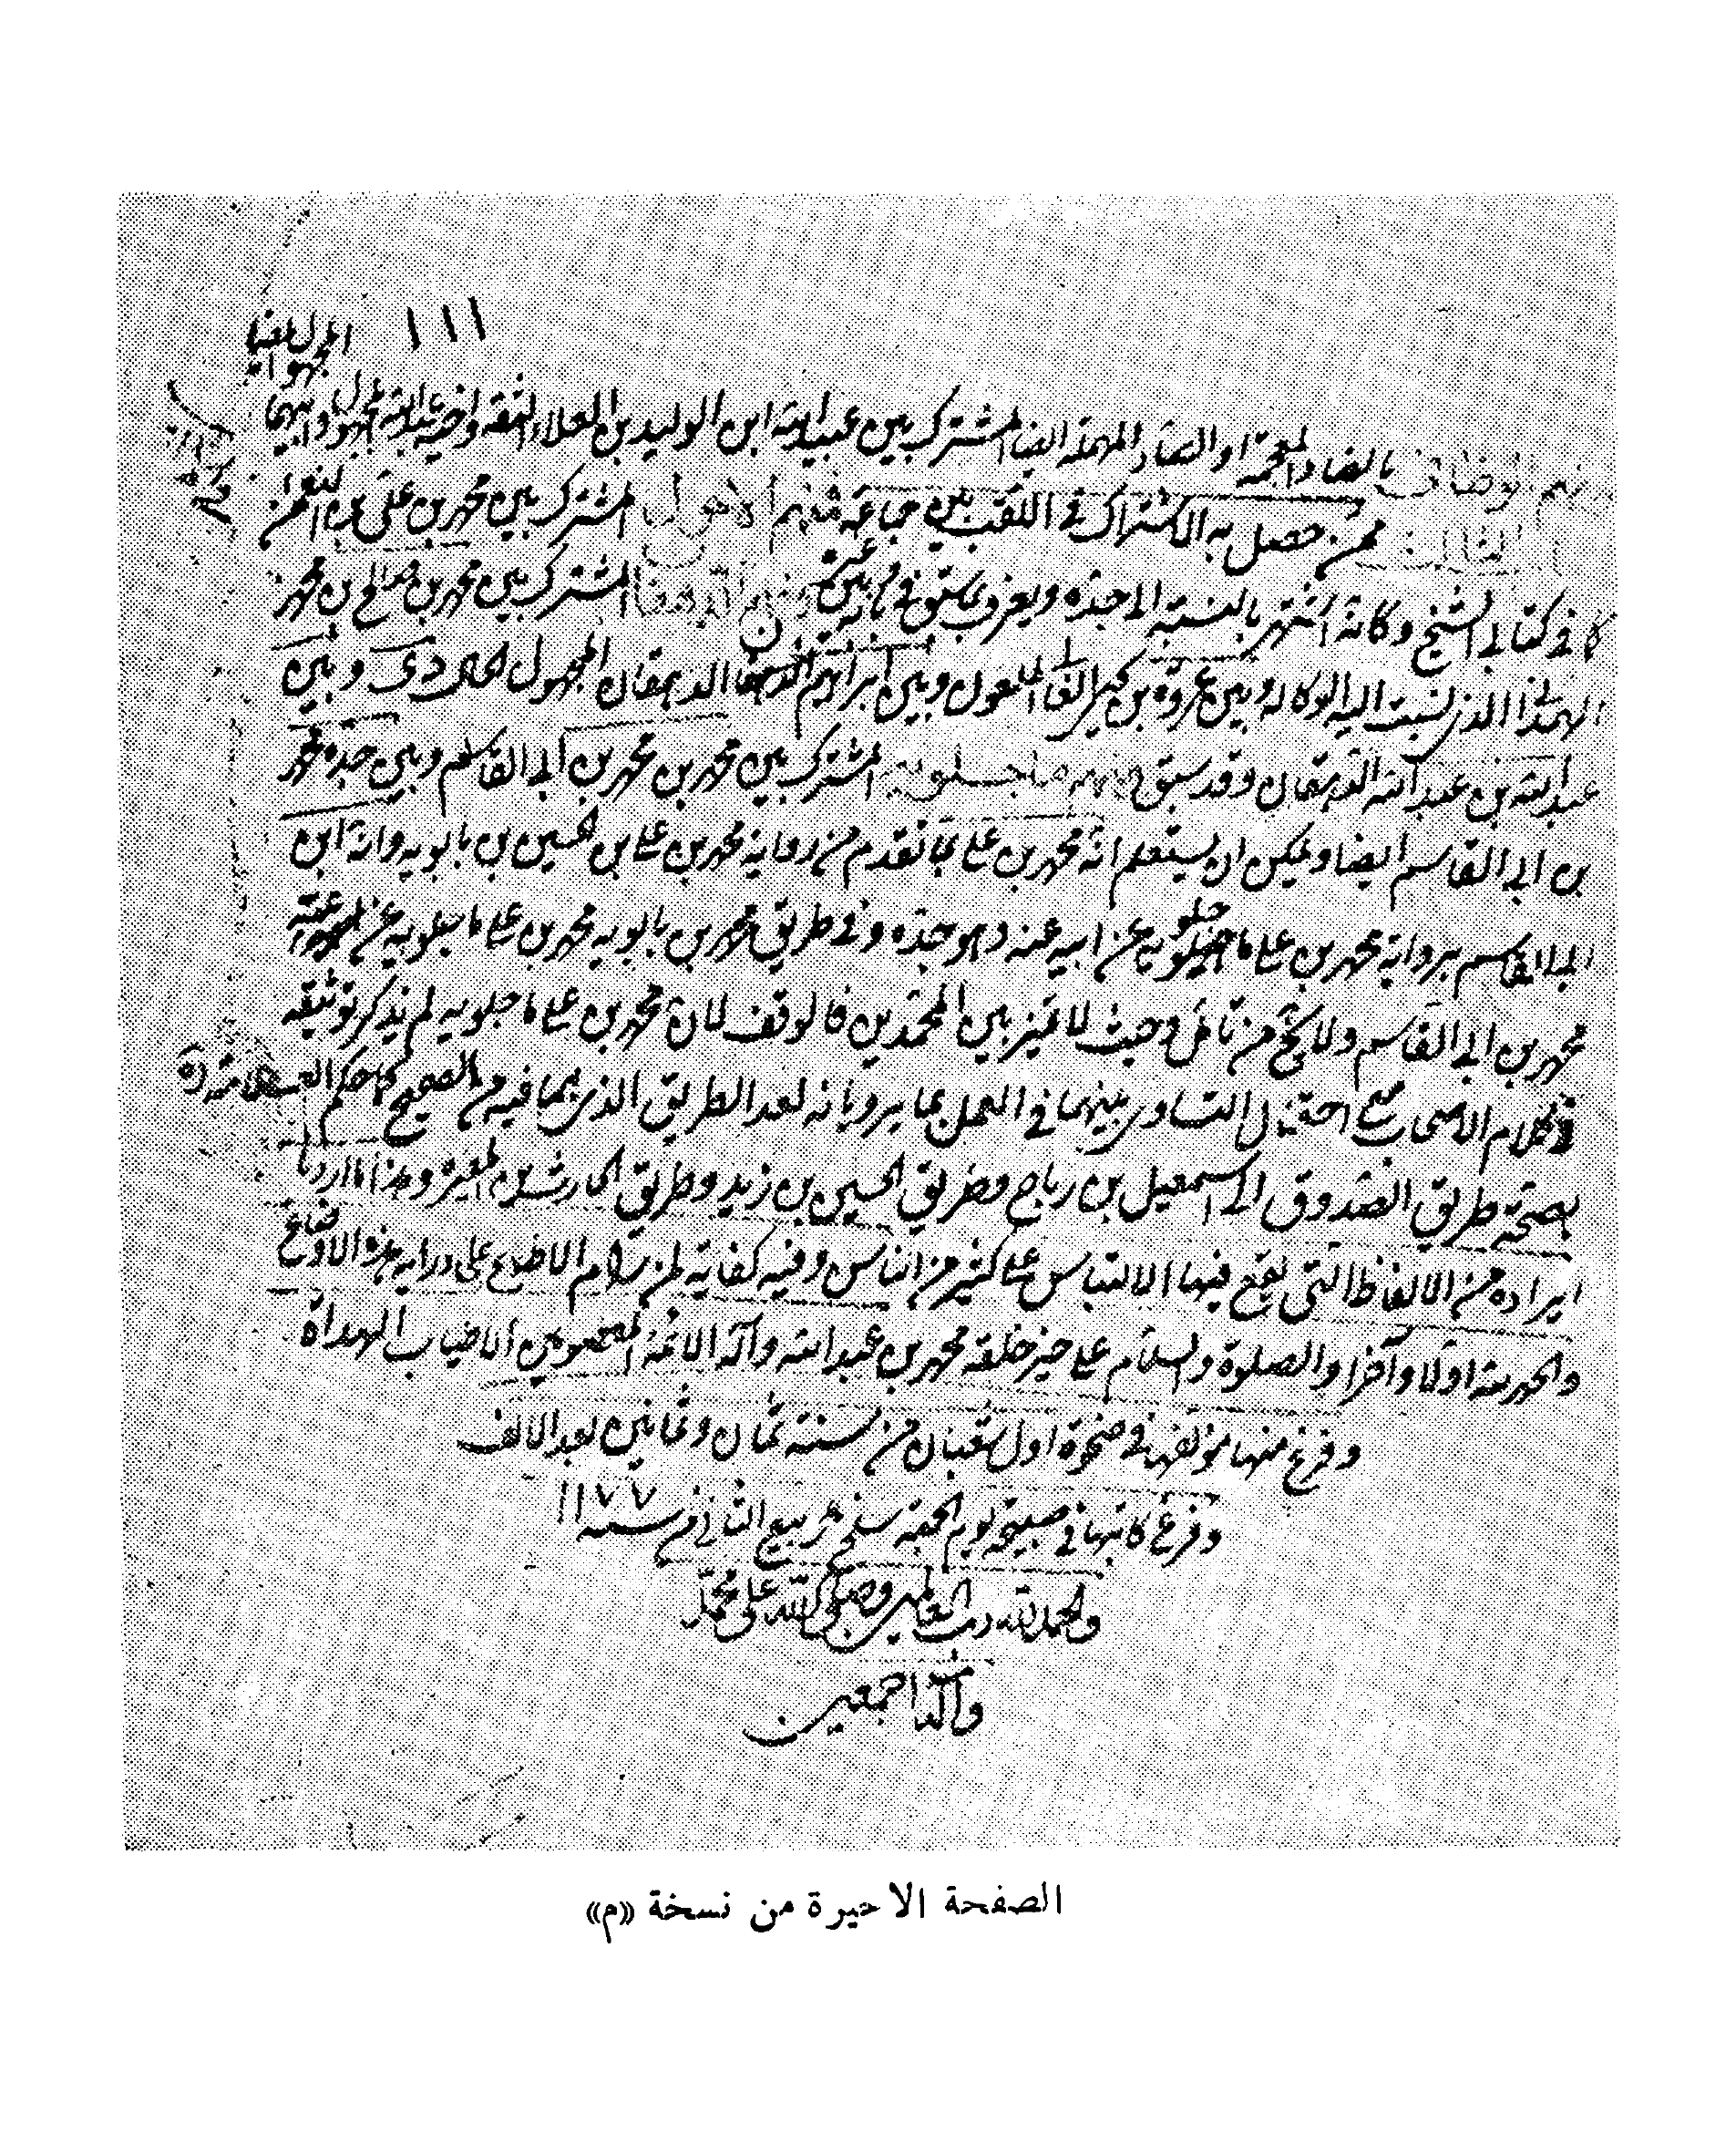 ١١١
المجهول ايضا
بالضاد المعجمة او الصاد المهملة ايضا المشترك بين عبد الله ابن الوليد بن العلاء الثقة واخيه المجهول وابيهما
ممن حصل به الاشتراك في اللقب بين جماعة منهم الاحول المشترك بين محمد بن علي بن النعمان
كما في كتابي الشيخ وكانه اشتهر بالنسبة الى جده ويعرف بما سبق في المشترك بين محمد بن صالح بن محمد
الهمداني الذي نسبت اليه الوكالة وبين عروة بن يحيى الملعون وبين ابراهيم الدهقان المجهول وبين
عبد الله بن عبد الله الدهقان وقد سبق ومنهم ماجيلويه المشترك بين محمد بن محمد بن ابي القاسم وبين جده محمد
بن ابي القاسم ايضا ويمكن ان يستعلم انه محمد بن علي بما تقدم من رواية محمد بن علي بن الحسين بن بابويه وانه ابن
ابي القاسم برواية محمد بن علي ماجيلويه عن ابيه عنه وهو جده وفي طريق محمد بن بابويه محمد بن علي ماجيلويه عن عمه
محمد بن ابي القاسم ولا يخ من تامل وحيث لا تميز بين المحمدين فالوقف لان محمد بن علي ماجيلويه لم يذكر توثيقه
في كلام الاصحاب مع احتمال التساوي بينهما في العمل بما يرويانه لعد الطريق الذي هما فيه من الصحيح كما حكم العلامة ره
بصحة طريق الصدوق الى اسمعيل بن رباح وطريق الحسين بن زيد وطريق الحارث بن المغيرة وهذا ما اردنا
ايراده من الالفاظ التي يقع فيها الالتباس على كثير من الناس وفيه كفاية لمن رام الاطلاع على دراية هذه الاوضاع
والحمد لله اولا وآخرا والصلوة والسلام على خير خلقه محمد بن عبد الله وآله الائمة المعصومين الاطياب الهداة
وفرغ منها مؤلفها في ضحوة اول شعبان من سنة ثمان وثمانين بعد الالف
وفرغ كاتبها في صبيحة يوم الجمعة سلخ ربيع الثاني من سنه ١١٧٧
والحمد لله رب العالمين وصلى الله على محمد
وآله اجمعين
الصفحة الاخيرة من نسخة «م»